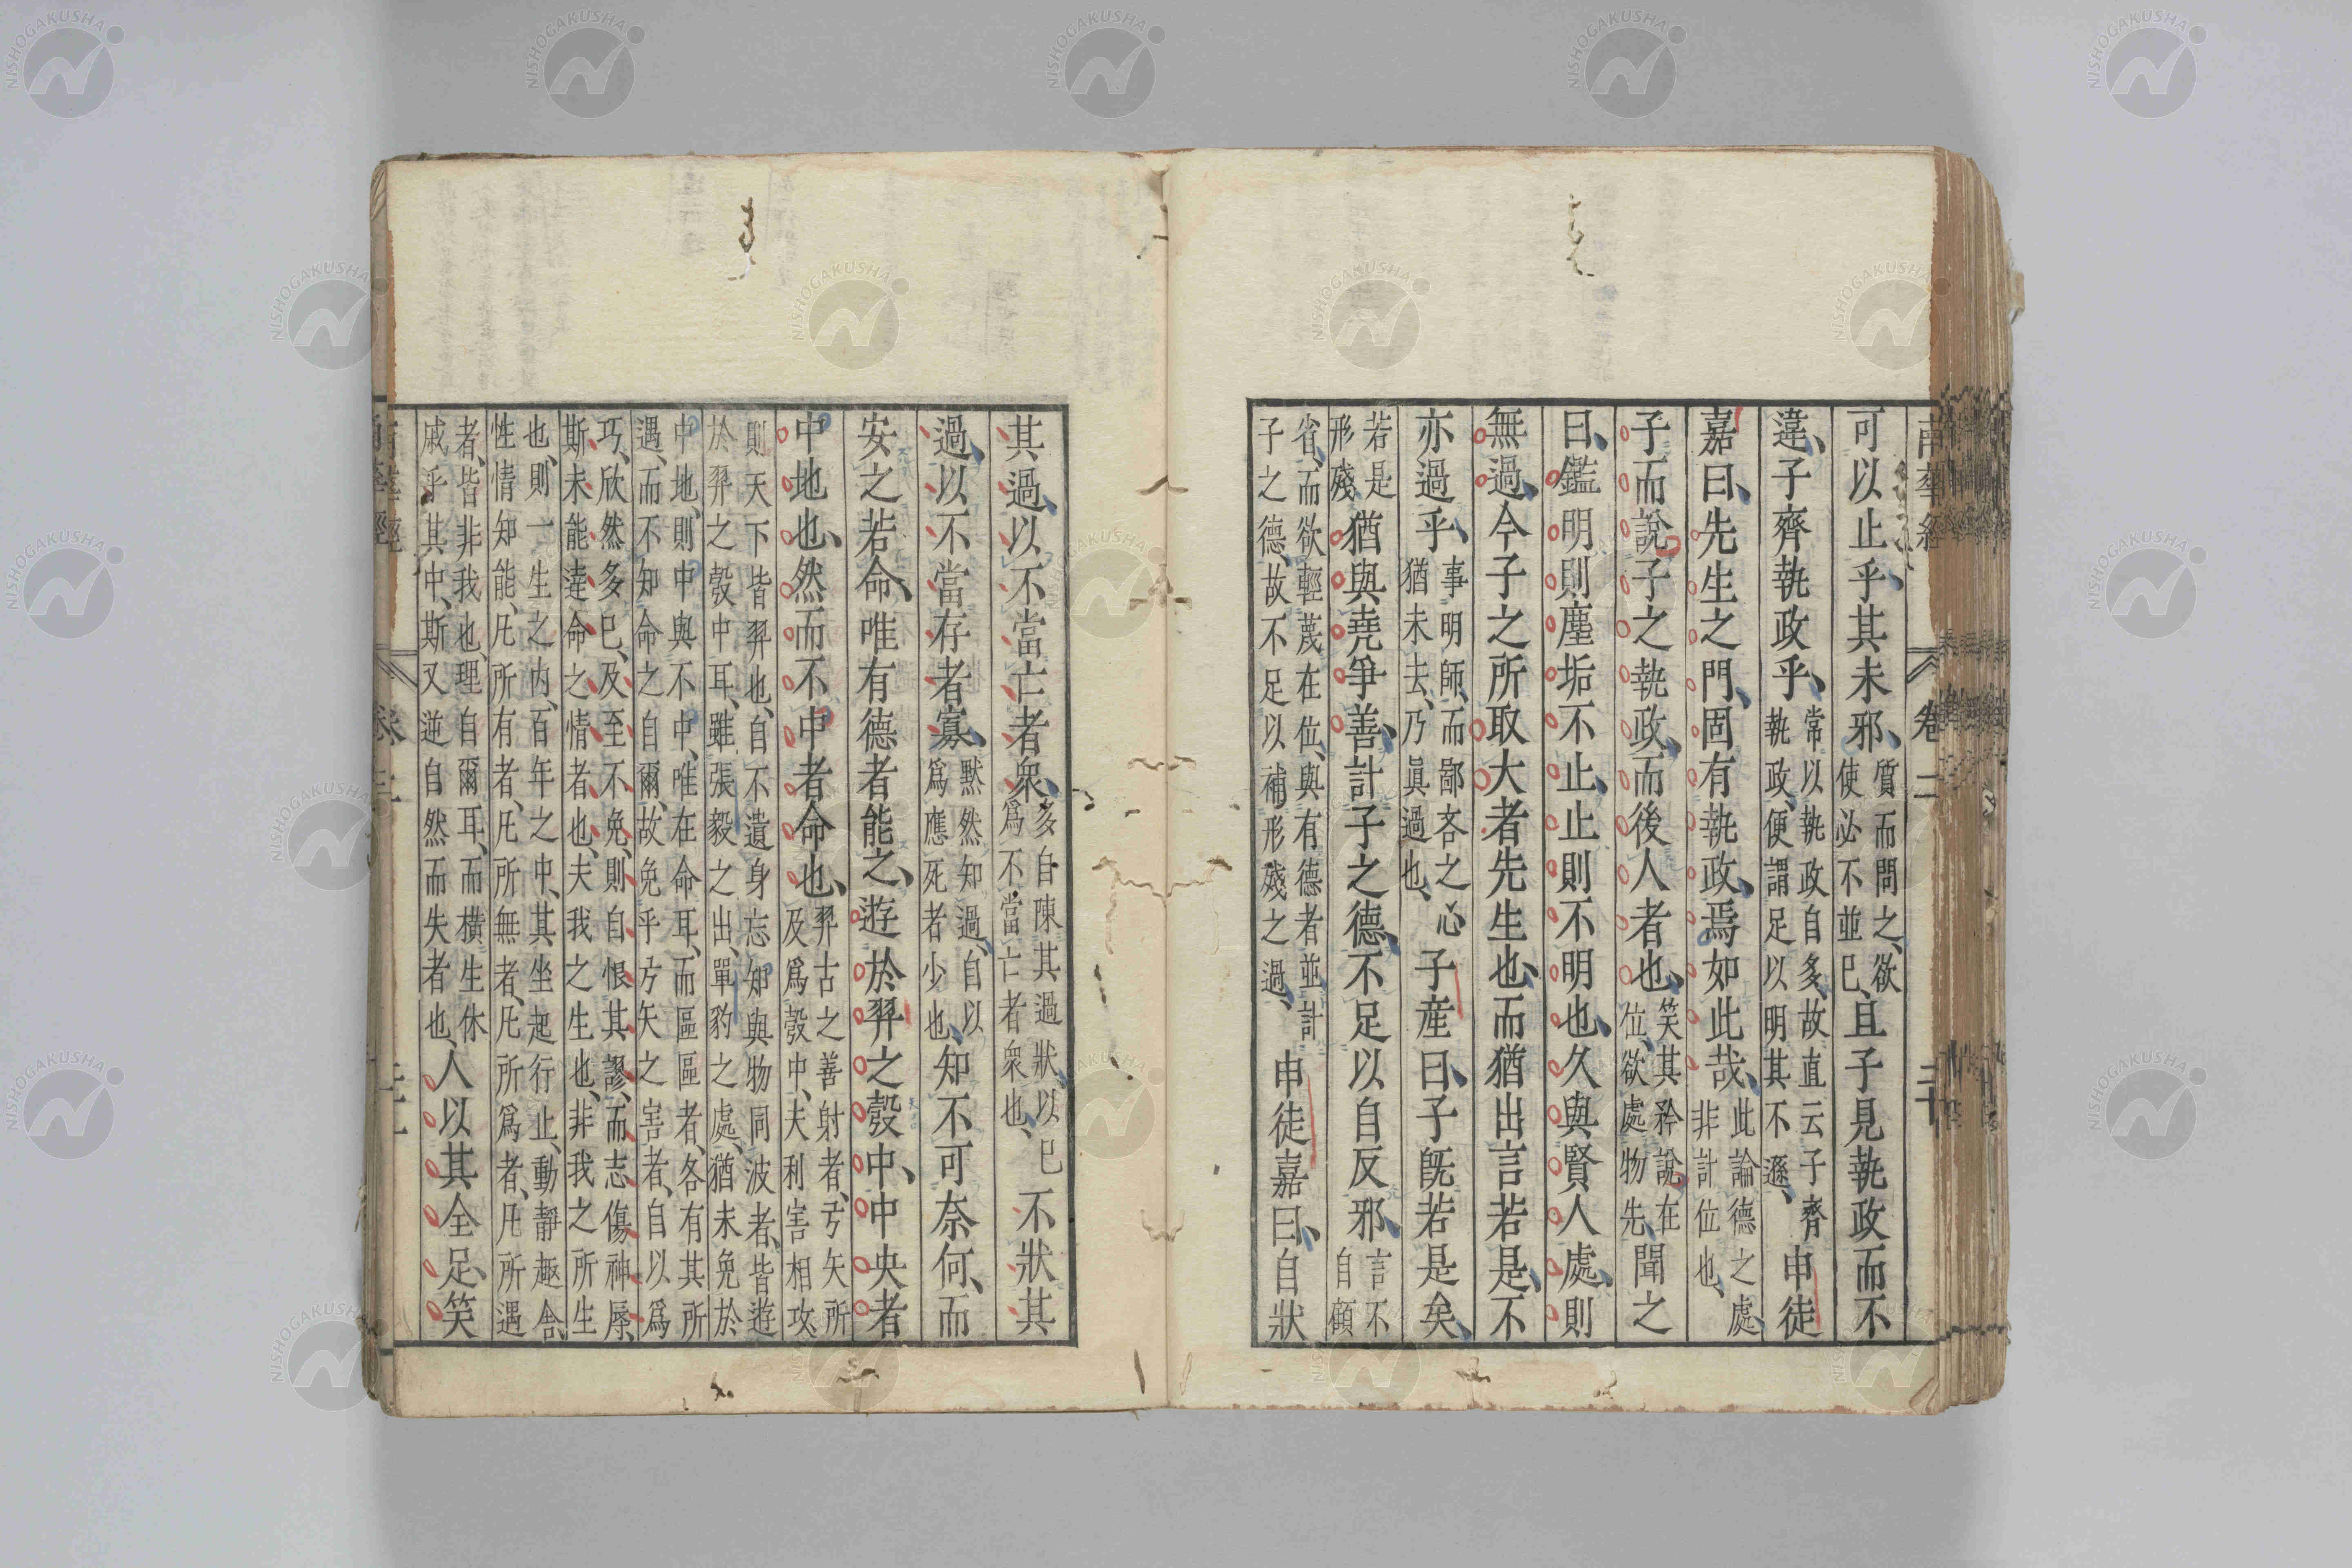 南華經 卷二 二十
可以止乎、其未邪、質而問之、欲使必不並已、且子見執政而不
違、子齊執政乎、常以執政自多、故直云子齊執政、便謂足以明其不遜、申徒
嘉曰、先生之門、固有執政、焉如此哉、此論德之處、非計位也、
子而說子之執政、而後人者也、笑其矜說在位、欲處物先、聞之
曰、鑑明則塵垢不止、止則不明也、久與賢人處、則
無過、今子之所取大者先生也、而猶出言若是、不
亦過乎、事明師、而鄙吝之心猶未去、乃眞過也、子産曰、子旣若是矣、
若是形殘、猶與堯爭善、計子之德、不足以自反邪、言不自顧
省、而欲輕蔑在位、與有德者並計子之德、故不足以補形殘之過、申徒嘉曰、自狀
其過、以不當亡者衆、多自陳其過狀、以已爲不當亡者衆也、不狀其
過、以不當存者寡、默然知過、自以爲應死者少也、知不可奈何、而
安之若命、唯有德者能之、遊於羿之彀中、中央者
中地也、然而不中者命也、羿古之善射者、弓矢所及爲彀中、夫利害相攻、
則天下皆羿也、自不遺身忘知與物同波者、皆遊
於羿之彀中耳、雖張毅之出、單豹之處、猶未免於
中地、則中與不中、唯在命耳、而區區者、各有其所
遇、而不知命之自爾、故免乎弓矢之害者、自以爲
巧、欣然多已、及至不免、則自恨其謬、而志傷神辱、
斯未能達命之情者也、夫我之生也、非我之所生
也、則一生之内、百年之中、其坐起行止、動靜趣舍、
性情知能、凡所有者、凡所無者、凡所爲者、凡所遇
者、皆非我也、理自爾耳、而橫生休
戚乎其中、斯又逆自然而失者也、人以其全足笑
南華經 卷二 二十一